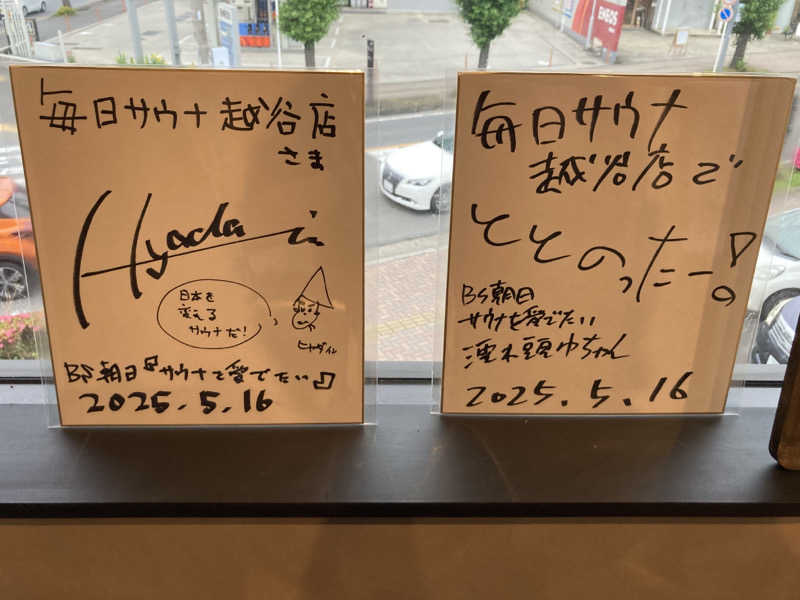 毎日サウナ 越谷店
さま
Hyadain
日本を
変える
サウナだ!
ヒャダイン
BS朝日『サウナを愛でたい』
2025.5.16
毎日サウナ
越谷店で
ととのったー!
BS朝日
サウナを愛でたい
2025.5.16
ENEOS